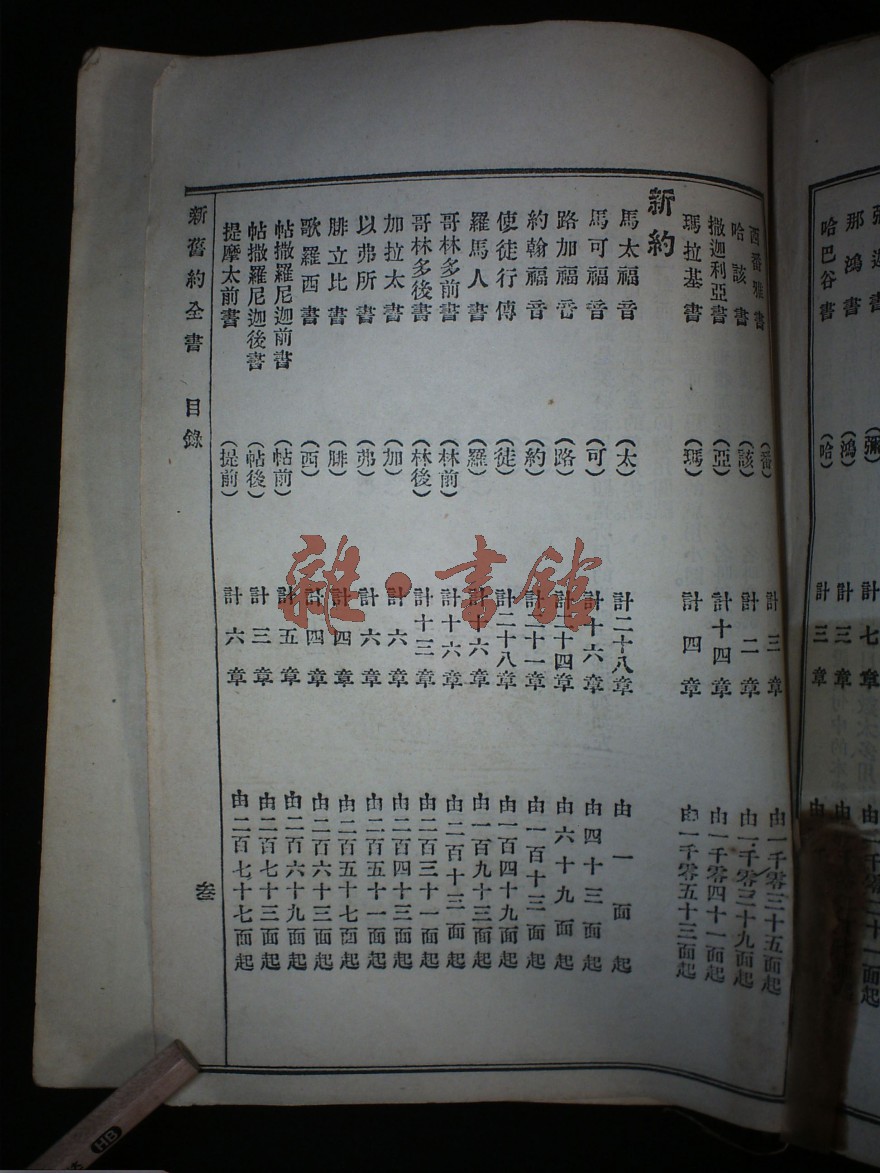 彌迦書 (彌) 計七章
那鴻書 (鴻) 計三章
哈巴谷書 (哈) 計三章
西番雅書 (番) 計三章 由一千零三十五面起
哈該書 (該) 計二章 由一千零三十九面起
撒迦利亞書 (亞) 計十四章 由一千零四十一面起
瑪拉基書 (瑪) 計四章 由一千零五十三面起
新約
馬太福音 (太) 計二十八章 由一面起
馬可福音 (可) 計十六章 由四十三面起
路加福音 (路) 計二十四章 由六十九面起
約翰福音 (約) 計二十一章 由一百十三面起
使徒行傳 (徒) 計二十八章 由一百四十九面起
羅馬人書 (羅) 計十六章 由一百九十三面起
哥林多前書 (林前) 計十六章 由二百十三面起
哥林多後書 (林後) 計十三章 由二百三十一面起
加拉太書 (加) 計六章 由二百四十三面起
以弗所書 (弗) 計六章 由二百五十一面起
腓立比書 (腓) 計四章 由二百五十七面起
歌羅西書 (西) 計四章 由二百六十三面起
帖撒羅尼迦前書 (帖前) 計五章 由二百六十九面起
帖撒羅尼迦後書 (帖後) 計三章 由二百七十三面起
提摩太前書 (提前) 計六章 由二百七十七面起
新舊約全書 目錄 叁
雜·書館
HB